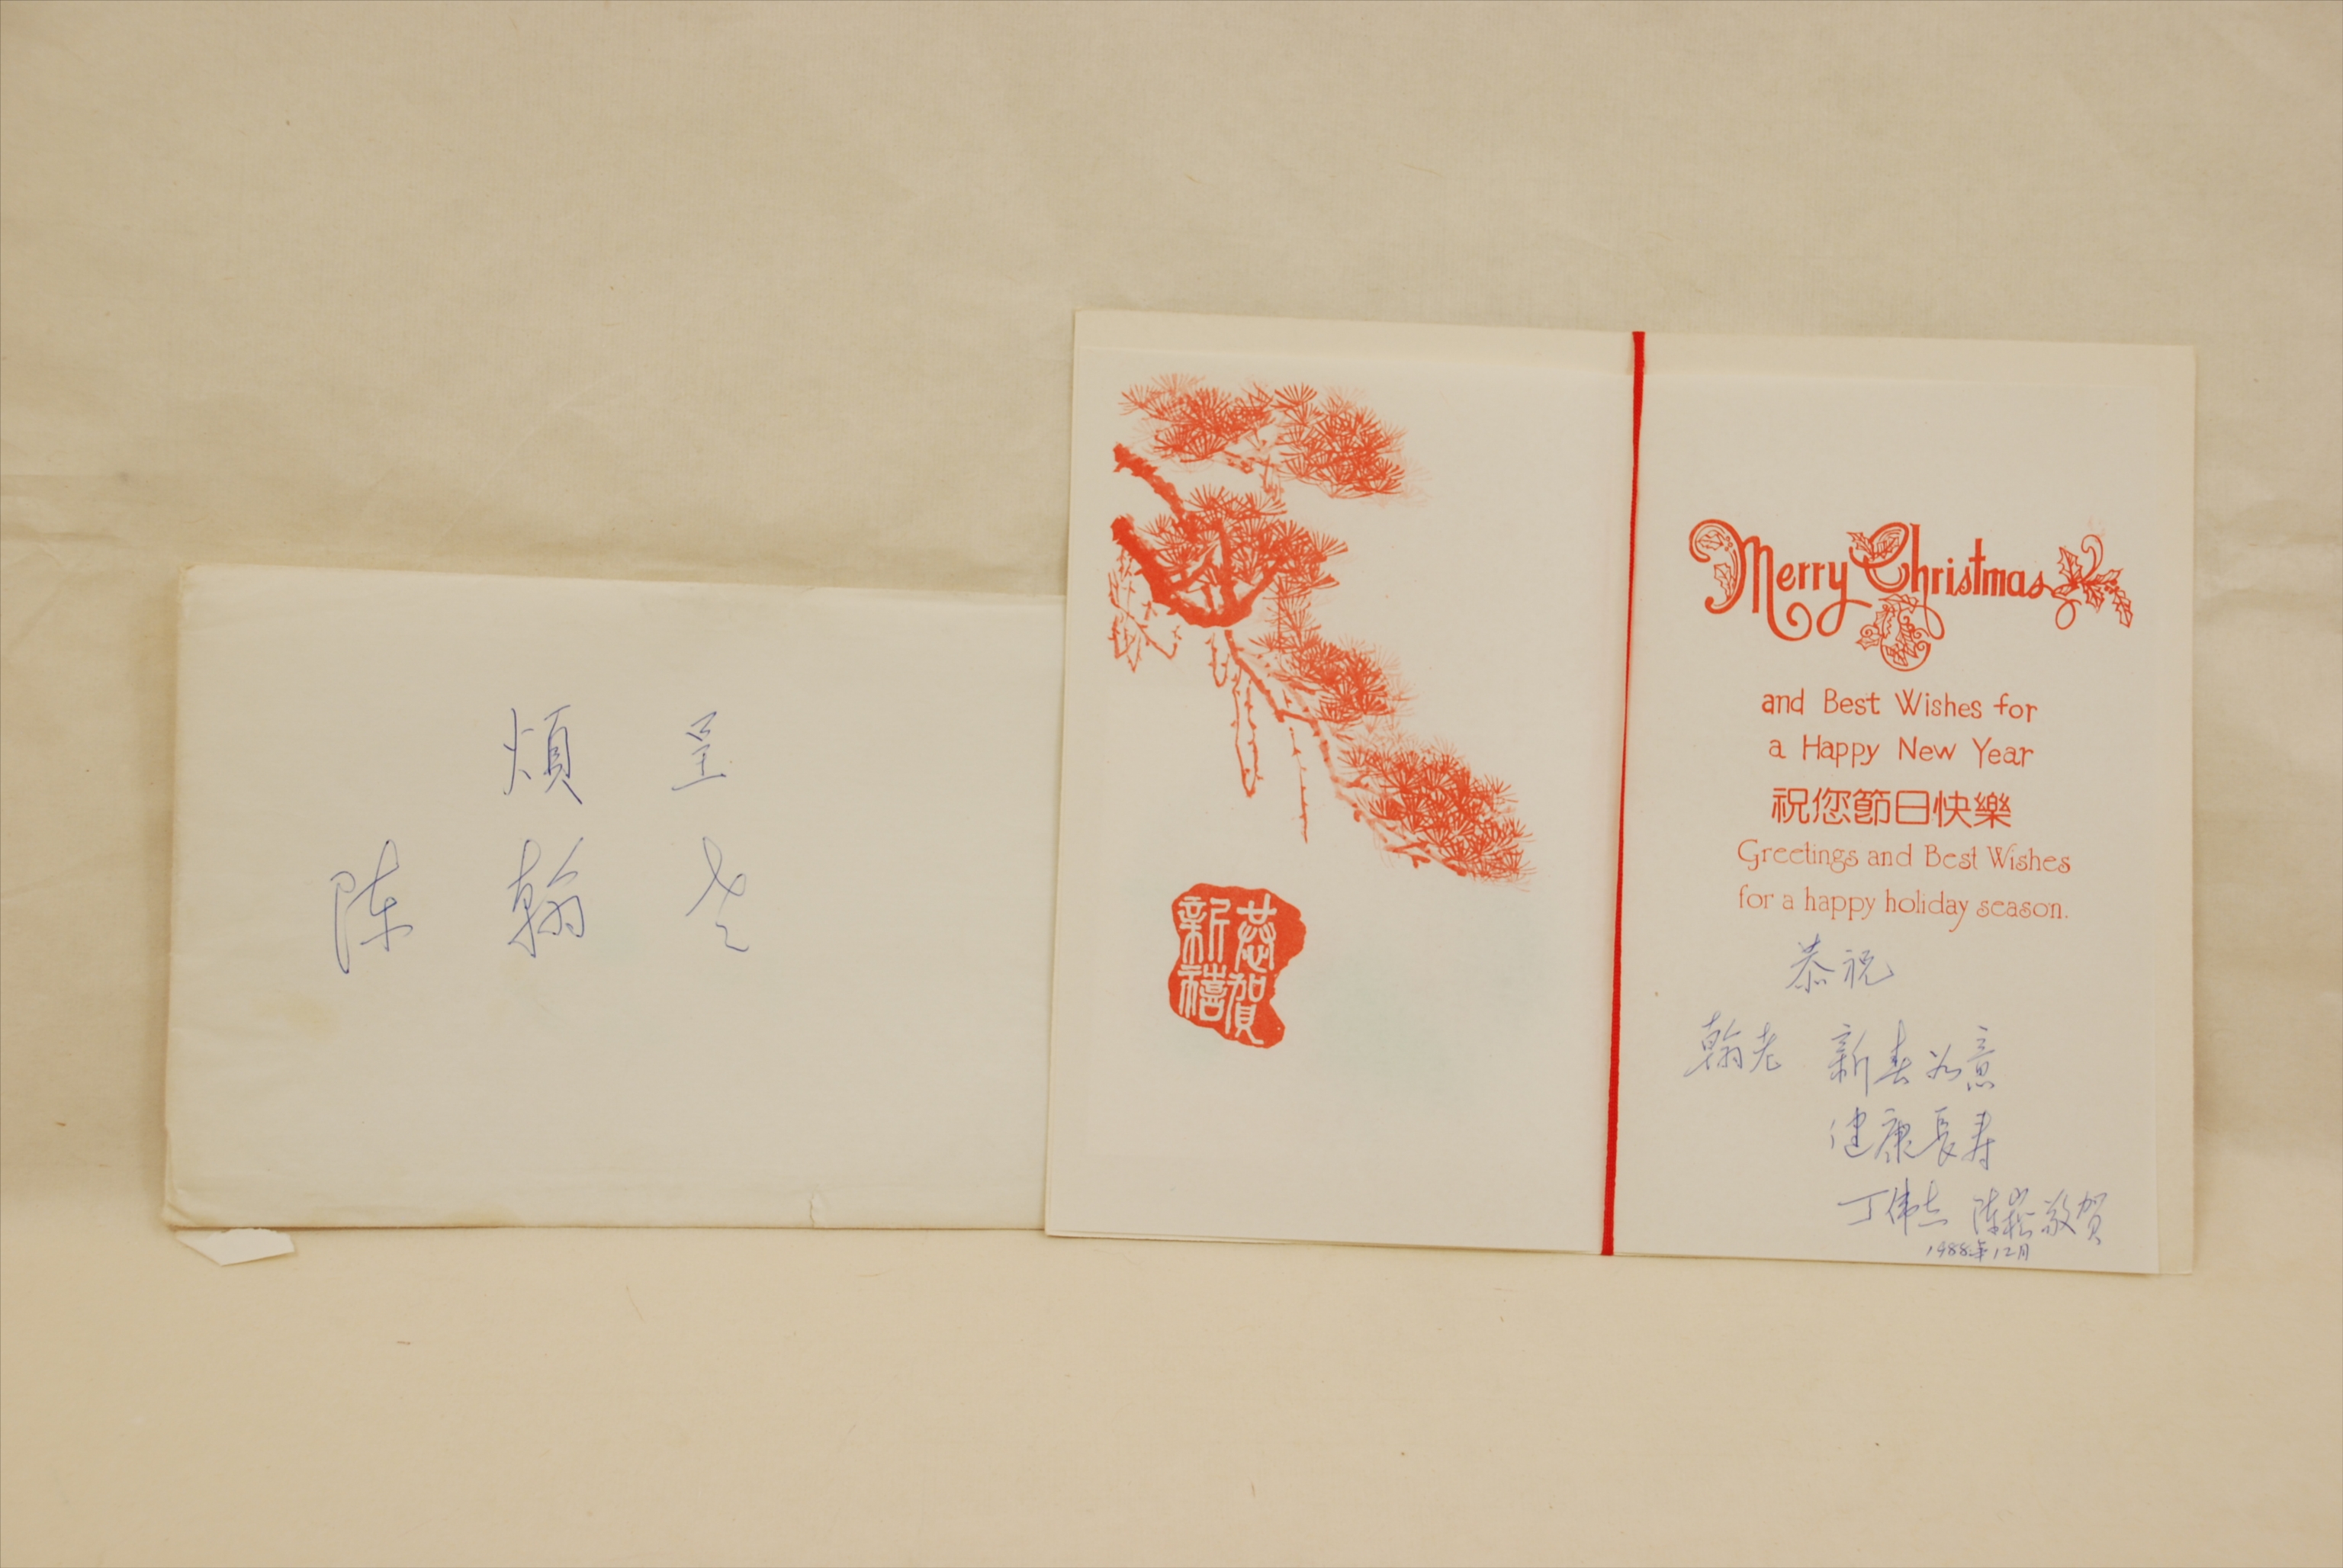 煩 呈
陈 翰 老
恭賀
新禧
Merry Christmas
and Best Wishes for
a Happy New Year
祝您節日快樂
Greetings and Best Wishes
for a happy holiday season.
恭祝
翰老 新春如意
健康長寿
丁伟志 陈崧 敬贺
1988年12月